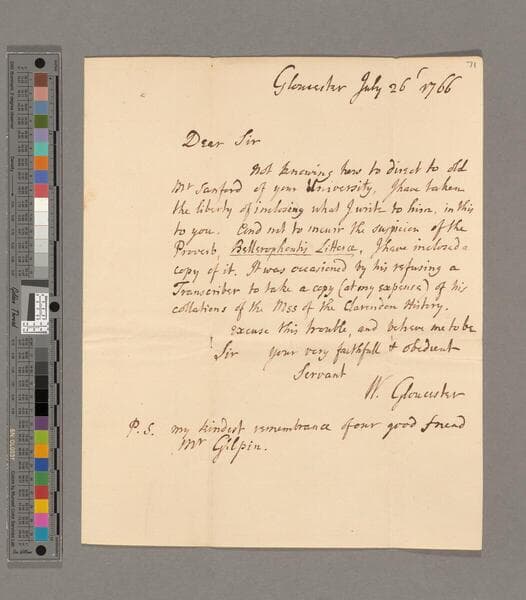 71
Gloucester July 26ᵗ 1766
Dear Sir
Not knowing how to direct to old
Mr Sanford of your University, I have taken
the liberty of inclosing what I write to him, in this
to you. And not to incurr the suspicion of the
Proverb, Bellerophontis Litteræ, I have inclosed a
copy of it. It was occasioned by his refusing a
Transcriber to take a copy (at my expence) of his
collations of the Mss of the Clarendon History.
excuse this trouble, and believe me to be
Sir your very faithfull & obedient
Servant
W. Gloucester
P.S. my kindest remembrance of our good friend
Mr Gilpin.